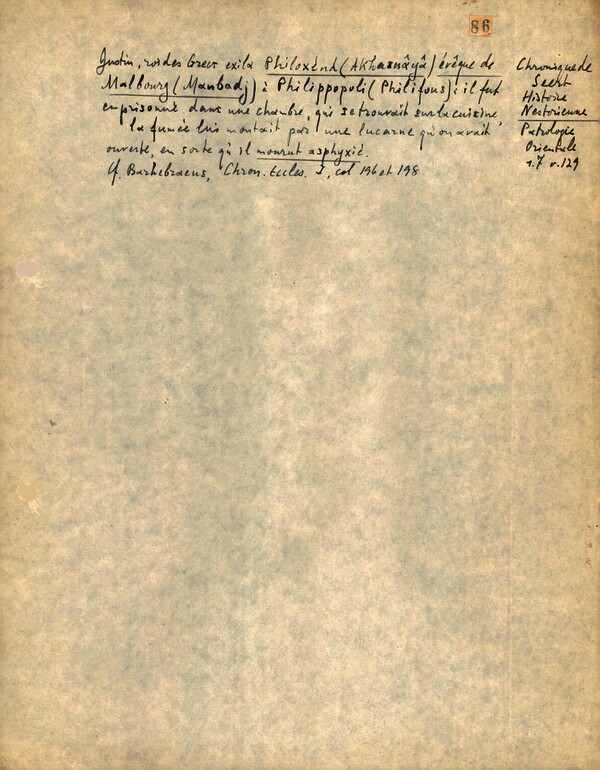 86
Justin, roi des Grecs exila Philoxène (Akhasnâyâ) évêque de
Malbourg (Manbadj) à Philippopoli (Philifous): il fut
emprisonné dans une chambre, qui se trouvait sur la cuisine,
la fumée lui montait par une lucarne qu'on avait
ouverte, en sorte qu'il mourut asphyxié.
Cf. Barhebraeus, Chron. Eccles. I, col 196 et 198
Chronique de
Seert
Histoire
Nestorienne
Patrologie
Orientale
t.7 p.129